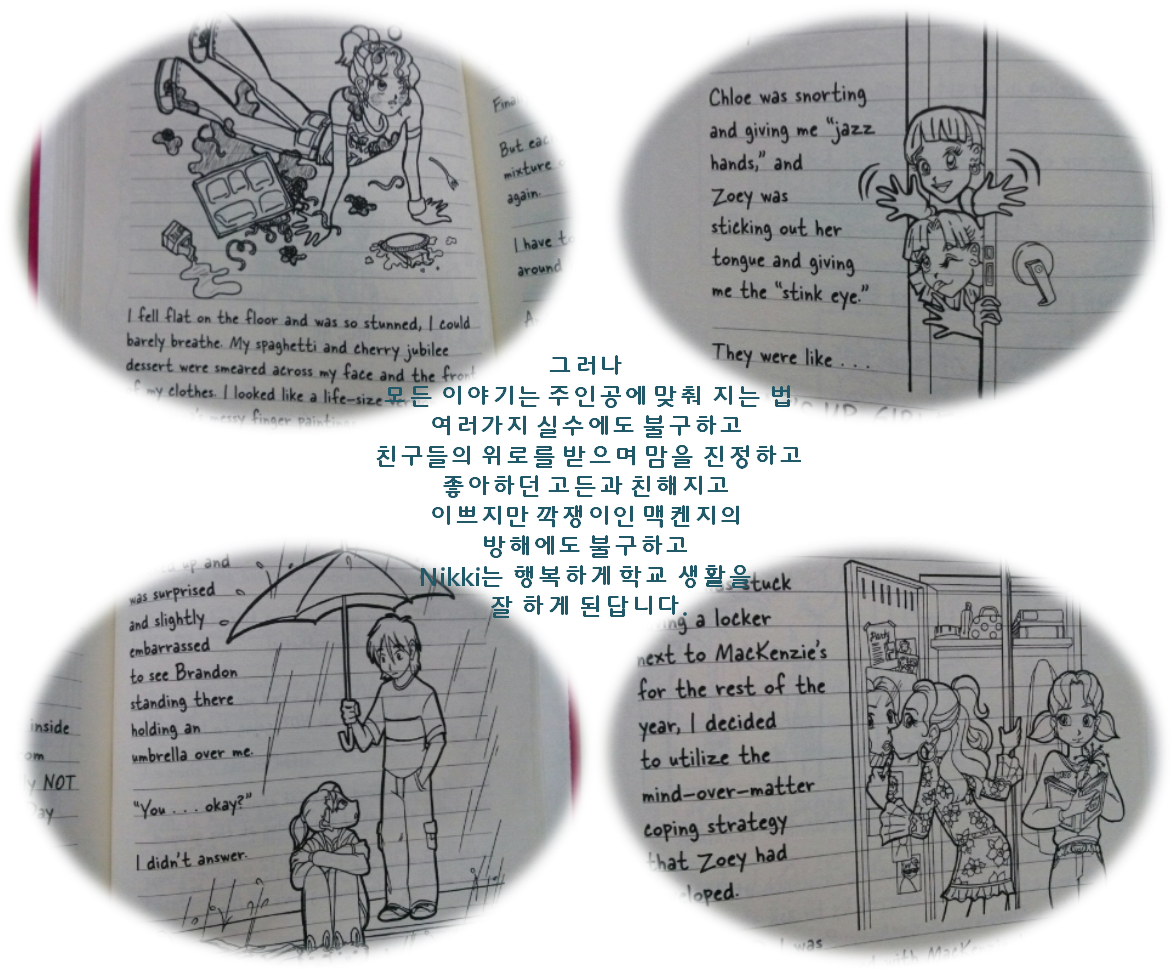 But eac
mixture
again.
I have to
around
I fell flat on the floor and was so stunned, I could
barely breathe. My spaghetti and cherry jubilee
dessert were smeared across my face and the front
of my clothes. I looked like a life-size
messy finger painting
Chloe was snorting
and giving me "jazz
hands," and
Zoey was
sticking out her
tongue and giving
me the "stink eye."
They were like . . .
그러나
모든 이야기는 주인공에 맞춰 지는 법
여러가지 실수에도 불구하고
친구들의 위로를 받으며 맘을 진정하고
좋아하던 고든과 친해지고
이쁘지만 깍쟁이인 맥켄지의
방해에도 불구하고
Nikki는 행복하게 학교 생활을
잘 하게 된답니다.
up and
was surprised
and slightly
embarrassed
to see Brandon
standing there
holding an
umbrella over me.
"You . . . okay?"
I didn't answer.
inside
NOT
stuck
a locker
next to MacKenzie's
for the rest of the
year, I decided
to utilize the
mind-over-matter
coping strategy
that Zoey had
eloped.
Party
was
with MacKen